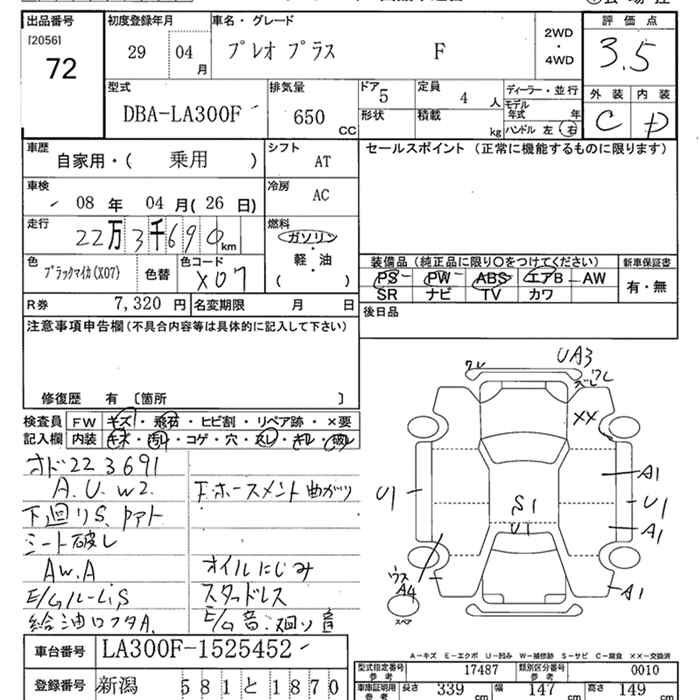 出品番号 初度登録年月 車名・グレード 評価点
[2056]
72
29 04 月 プレオ プラス F
2WD
・
4WD
3.5
型式 排気量 ドア 定員 ディーラー・並行 外装 内装
DBA-LA300F 650 CC 5 4 人
モデル年式 年
形状 積載 kg ハンドル 左 右
C D
車歴 シフト セールスポイント (正常に機能するものに限ります)
自家用・( 乗用 ) AT
車検 冷房
08 年 04 月 ( 26 日) AC
走行 燃料
22万3千690km ガソリン
軽・油
( )
色 色コード
ブラックマイカ(X07) 色替 X07
装備品 (純正品に限り○をつけてください) 新車保証書
PS PW ABS エアB AW 有・無
SR ナビ TV カワ
R券 7,320 円 名変期限 月 日 後日品
注意事項申告欄 (不具合内容等は具体的に記入して下さい)
修復歴 有 [箇所 ]
検査員 FW キズ・飛石・ヒビ割・リペア跡・×要
記入欄 内装 キズ・汚れ・コゲ・穴・スレ・キレ・破レ
オド223691
A.U.W2. F.ホースメント曲がり
下廻りS.
シート破レ
AW.A オイルにじみ
スタッドレス
給油口フタA. E/G音.廻り音
ワレ UA3
XX
U1 A1
S1 U1
U1 A1
A4 A1
スペア
A-キズ E-エクボ U-凹み W-補修跡 S-サビ C-腐食 XX-交換済
車台番号 LA300F-1525452
型式指定番号 参考 17487 類別区分番号 参考 0010
登録番号 新潟 581 と 1870
車庫証明用 参考 長さ 339 cm 幅 147 cm 高さ 149 cm